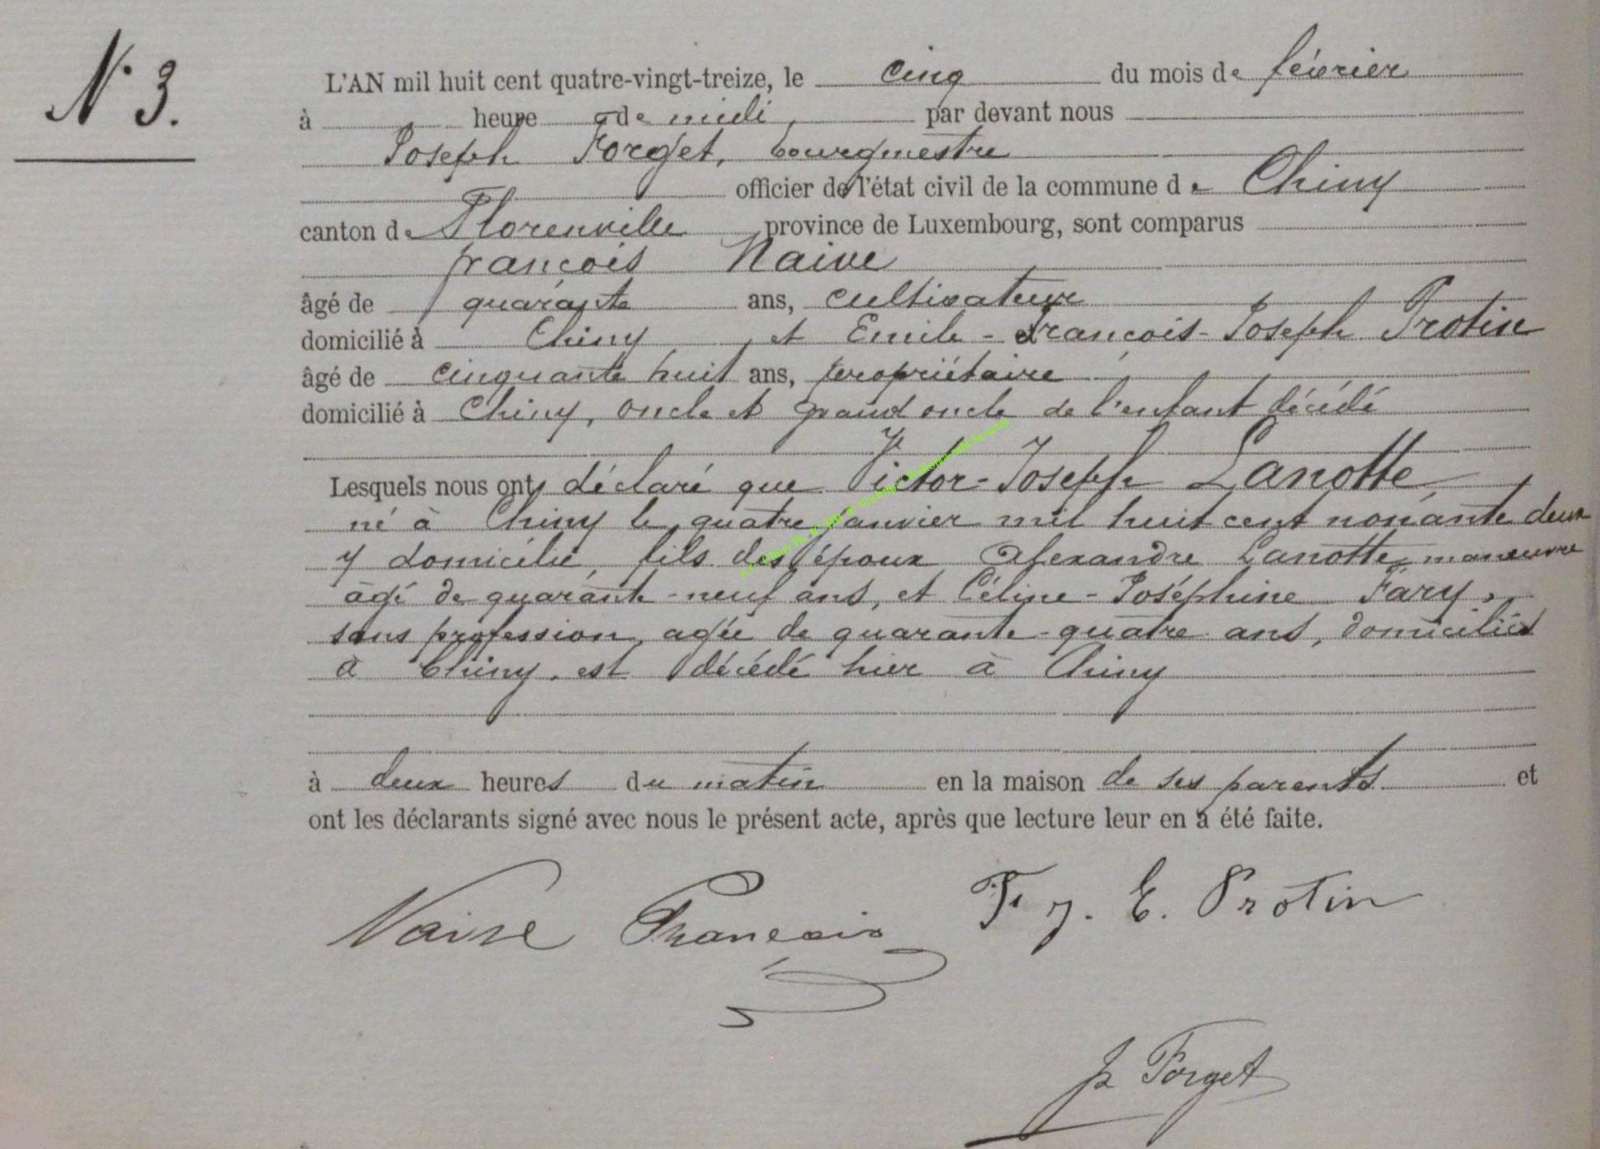 N° 3.
L'AN mil huit cent quatre-vingt-treize, le cinq du mois de février
à heure de midi, par devant nous
Joseph Forget, bourgmestre
officier de l'état civil de la commune de Chiny
canton de Florenville province de Luxembourg, sont comparus
françois Naive
âgé de quarante ans, cultivateur
domicilié à Chiny, et Emile-François-Joseph Protin
âgé de cinquante huit ans, propriétaire
domicilié à Chiny, oncle et grand oncle de l'enfant décédé
Lesquels nous ont déclaré que Victor-Joseph Lanotte,
né à Chiny le quatre janvier mil huit cent nonante deux
y domicilié, fils des époux Alexandre Lanotte, manœuvre
âgé de quarante-neuf ans, et Céline-Joséphine Fary,
sans profession, agée de quarante-quatre ans, domiciliés
à Chiny, est décédé hier à Chiny
à deux heures du matin en la maison de ses parents et
ont les déclarants signé avec nous le présent acte, après que lecture leur en a été faite.
Naive François F. J. E. Protin
J. Forget